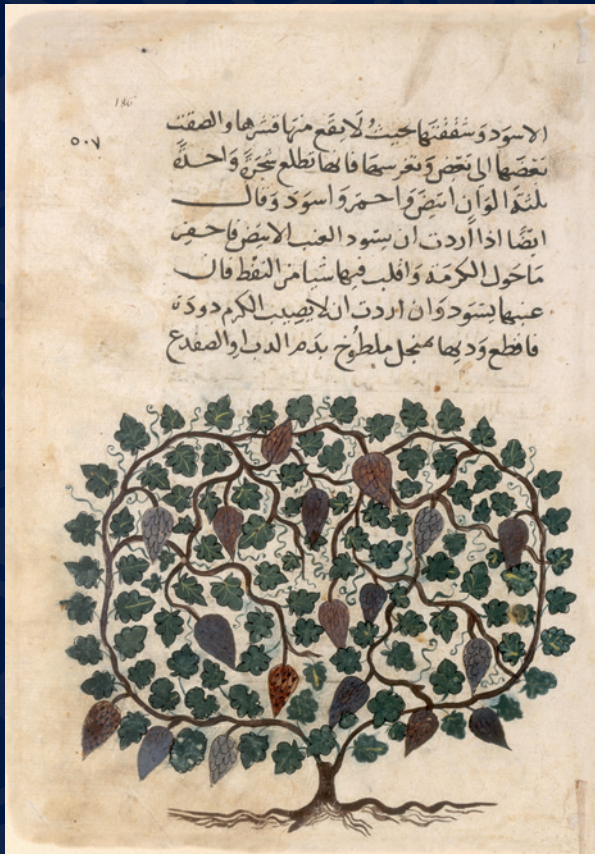 186
٥٠٧
الاسود وشققتها بحيث لا يقع منها قشرها والصقت
بعضها الى بعض وتغرسها فانها تطلع شجرة واحدة
بثلثة الوان ابيض واحمر واسود وقال
ايضا اذا أردت ان يسود العنب الابيض فاحفر
ما حول الكرمة واقلب فيها شيا من النفط فان
عنبها يسود وان اردت ان لا يصيب الكرم دودة
فاقطع وديها بمنجل ملطوخ بدم الدب او الضفدع